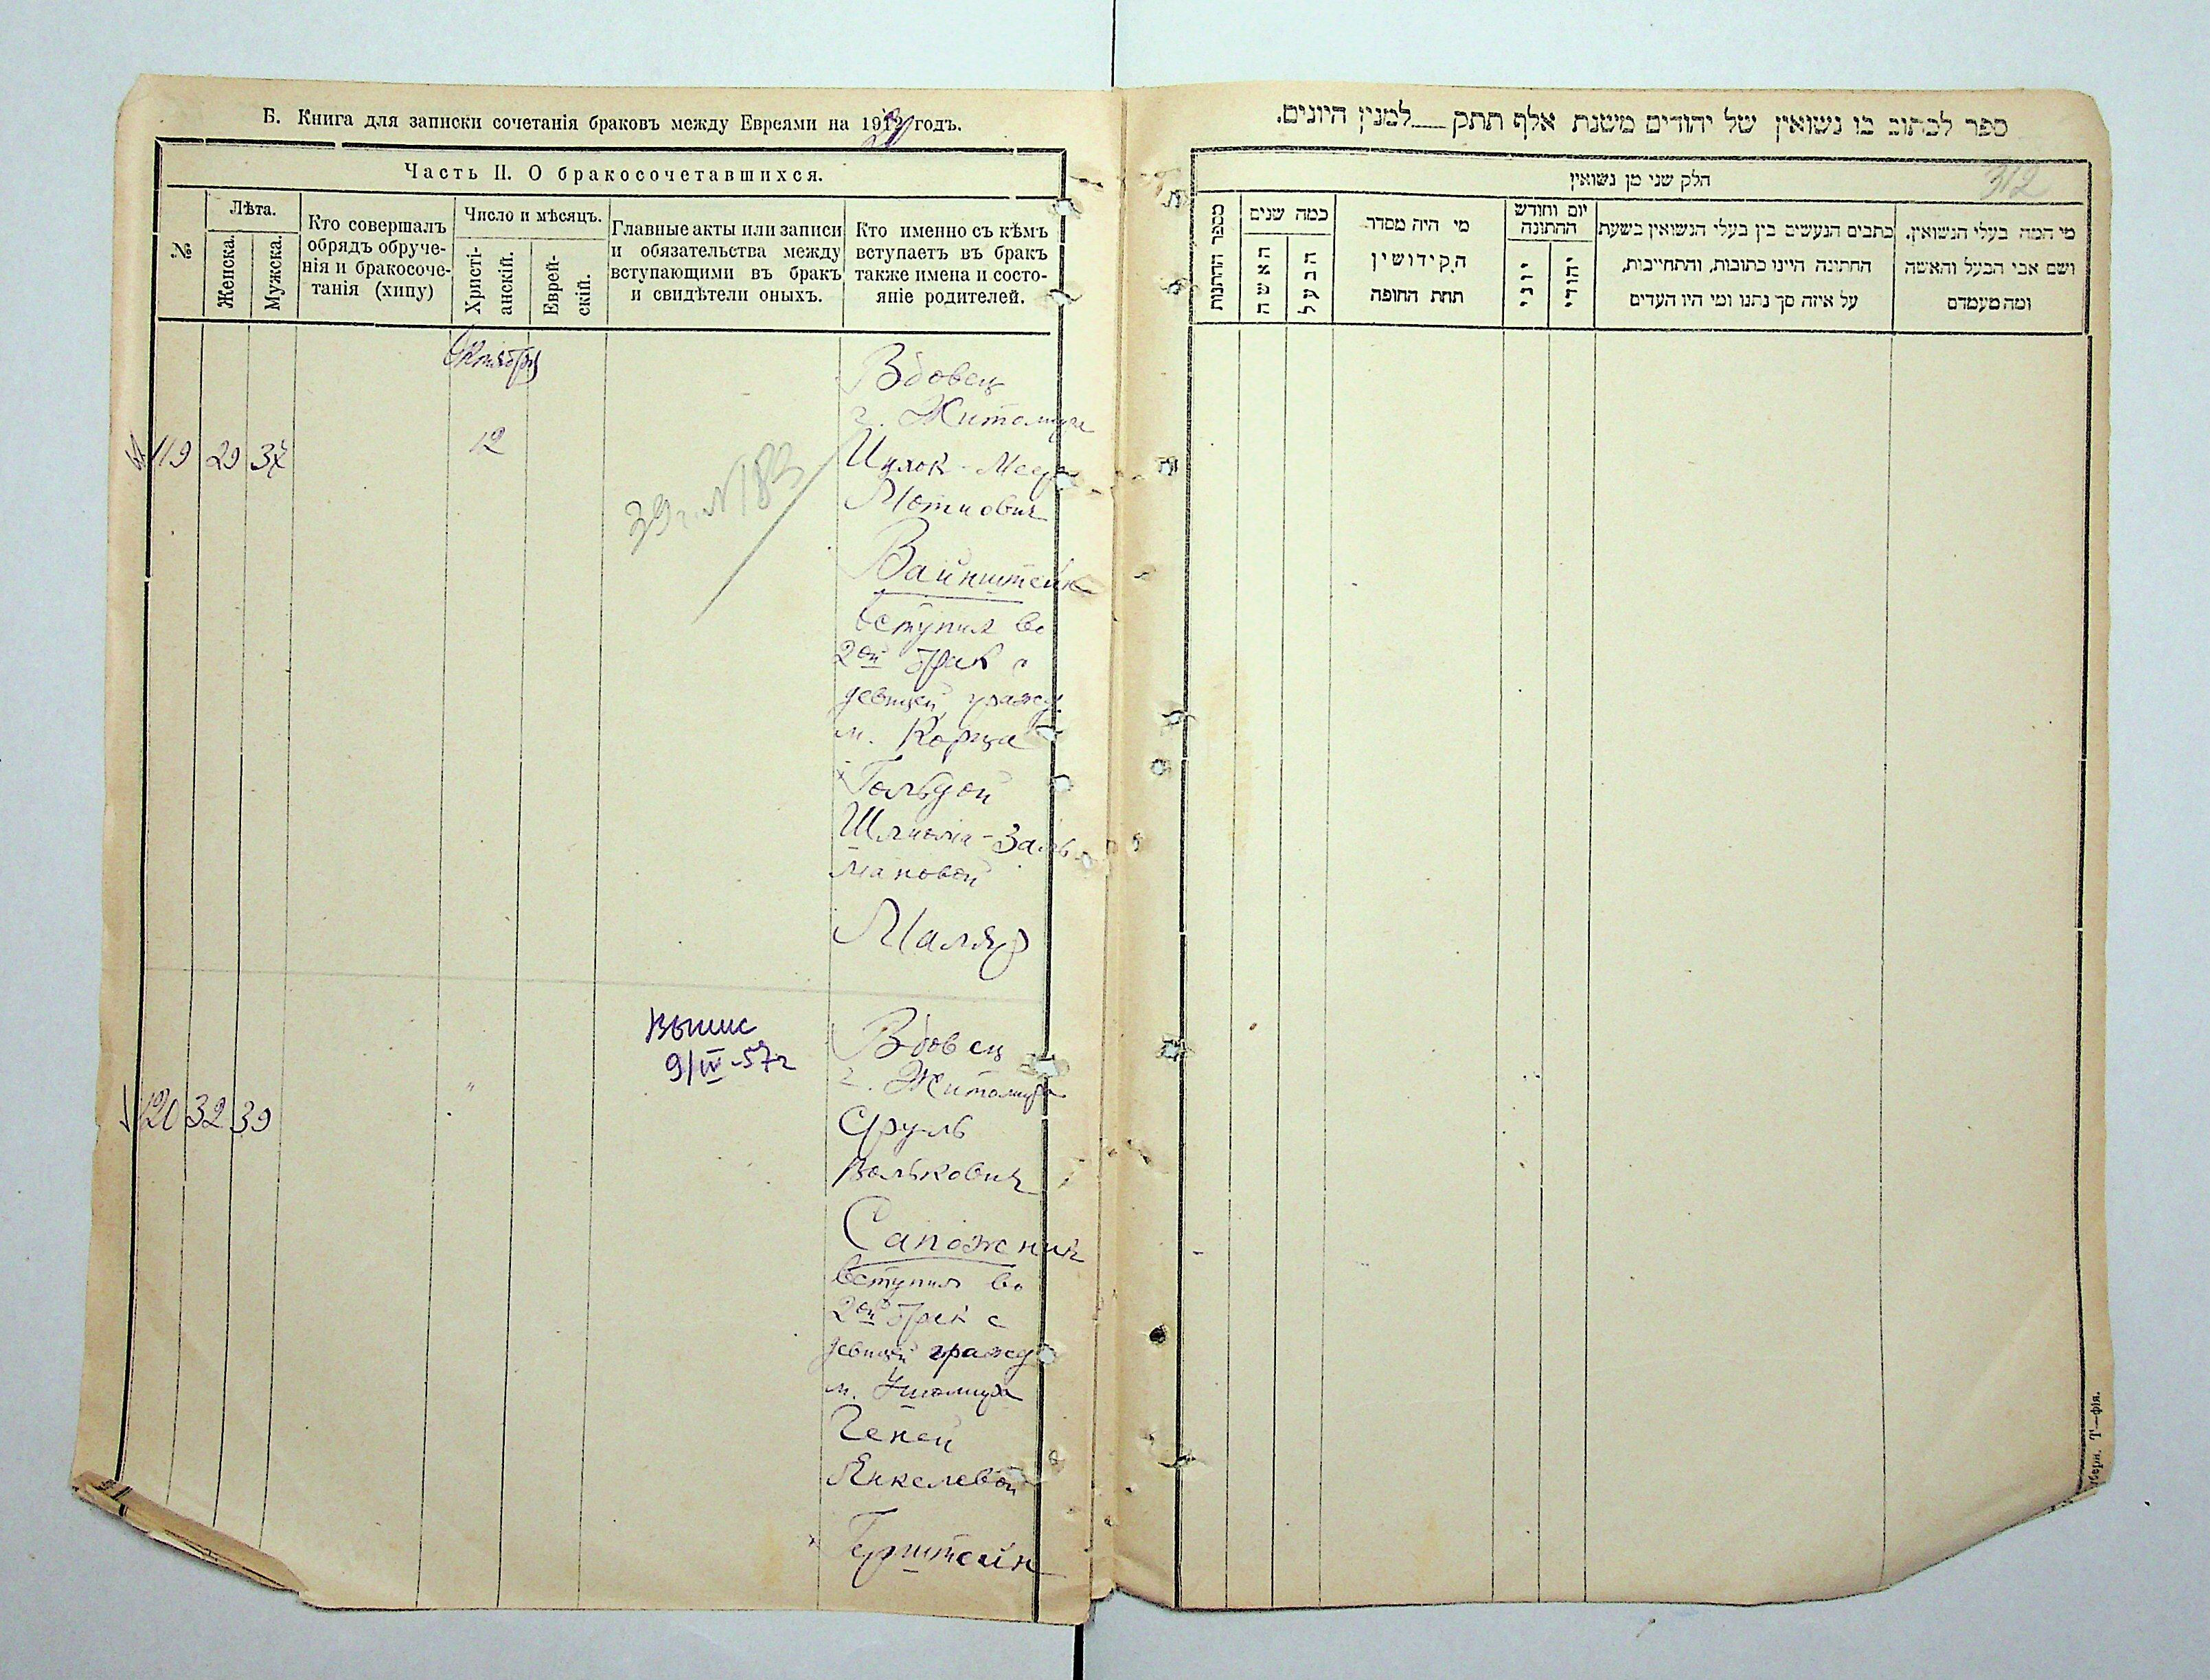 Б. Книга для записки сочетанія браковъ между Евреями на 19 годъ.
Часть II. О бракосочетавшихся.
№
Лѣта.
Женска.
Мужска.
Кто совершалъ
обрядъ обруче-
нія и бракосоче-
танія (хипу)
Число и мѣсяцъ.
Христі-
анскій.
Еврей-
скій.
Главные акты или записи
и обязательства между
вступающими въ бракъ
и свидѣтели оныхъ.
Кто именно съ кѣмъ
вступаетъ въ бракъ
также имена и состо-
яніе родителей.
Октября
119 29 37
12
Вдовец
г. Житомира
Ицхок-Меер
Мотиович
Вайнштейн
вступил во
2ой брак с
девицей гражд.
м. Корца
Гольдой
Шлиома-Заль
мановой
Маляр
120 32 39
"
Выпис
9/IV-57г
Вдовец
г. Житомира
Сруль
Волькович
Сапожник
вступил во
2ой брак с
девицей гражд
м. Ушомира
Геней
Янкелевой
Герштейн
ספר לכתוב בו נשואין של יהודים משנת אלף תתק__למנין היונים.
312
חלק שני מן נשואין
מספר החתנות
כמה שנים
האשה
הבעל
מי היה מסדר
הקידושין
תחת החופה
יום וחודש
החתונה
יוני
יהודי
כתבים הנעשים בין בעלי הנשואין בשעת
החתונה היינו כתובות, והתחייבות,
על איזה סך נתנו ומי היו העדים
מי המה בעלי הנשואין.
ושם אבי הבעל והאשה
ומה מעמדם
Т—фія.